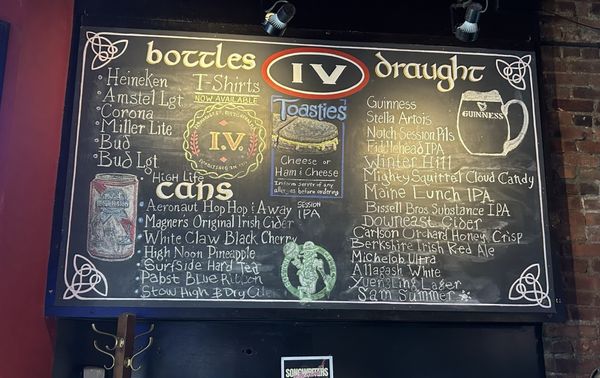 bottles
Heineken
Amstel Lgt
Corona
Miller Lite
Bud
Bud Lgt
High Life
T-Shirts
NOW AVAILABLE
I.V.
IV
Toasties
Cheese or
Ham & Cheese
Inform server if any
allergies before ordering
cans
Aeronaut Hop Hop & Away
SESSION
IPA
Magner's Original Irish Cider
White Claw Black Cherry
High Noon Pineapple
Surfside Hard Tea
Pabst Blue Ribbon
Stow High & Dry
draught
Guinness
Stella Artois
Notch Session Pils
Fiddlehead IPA
Winter Hill
Mighty Squirrel Cloud Candy
Maine Lunch IPA
Bissell Bros Substance IPA
Downeast Cider
Carlson Orchard Honey Crisp
Berkshire Irish Red Ale
Michelob Ultra
Allagash White
Yuengling Lager
Sam Summer
GUINNESS
SONGWRITERS